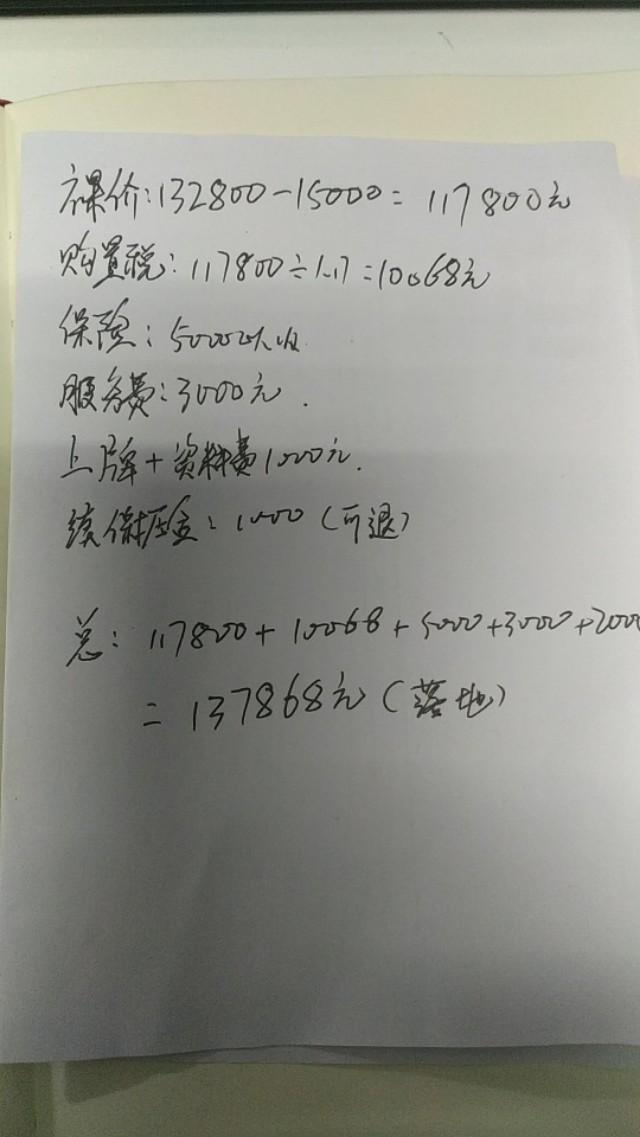 裸价:132800-15000=117800元
购置税:117800÷1.17=10068元
保险:5000以内
服务费:3000元.
上牌+资料费1000元.
续保押金:1000(可退)
总:117800+10068+5000+3000+2000
=137868元(落地)